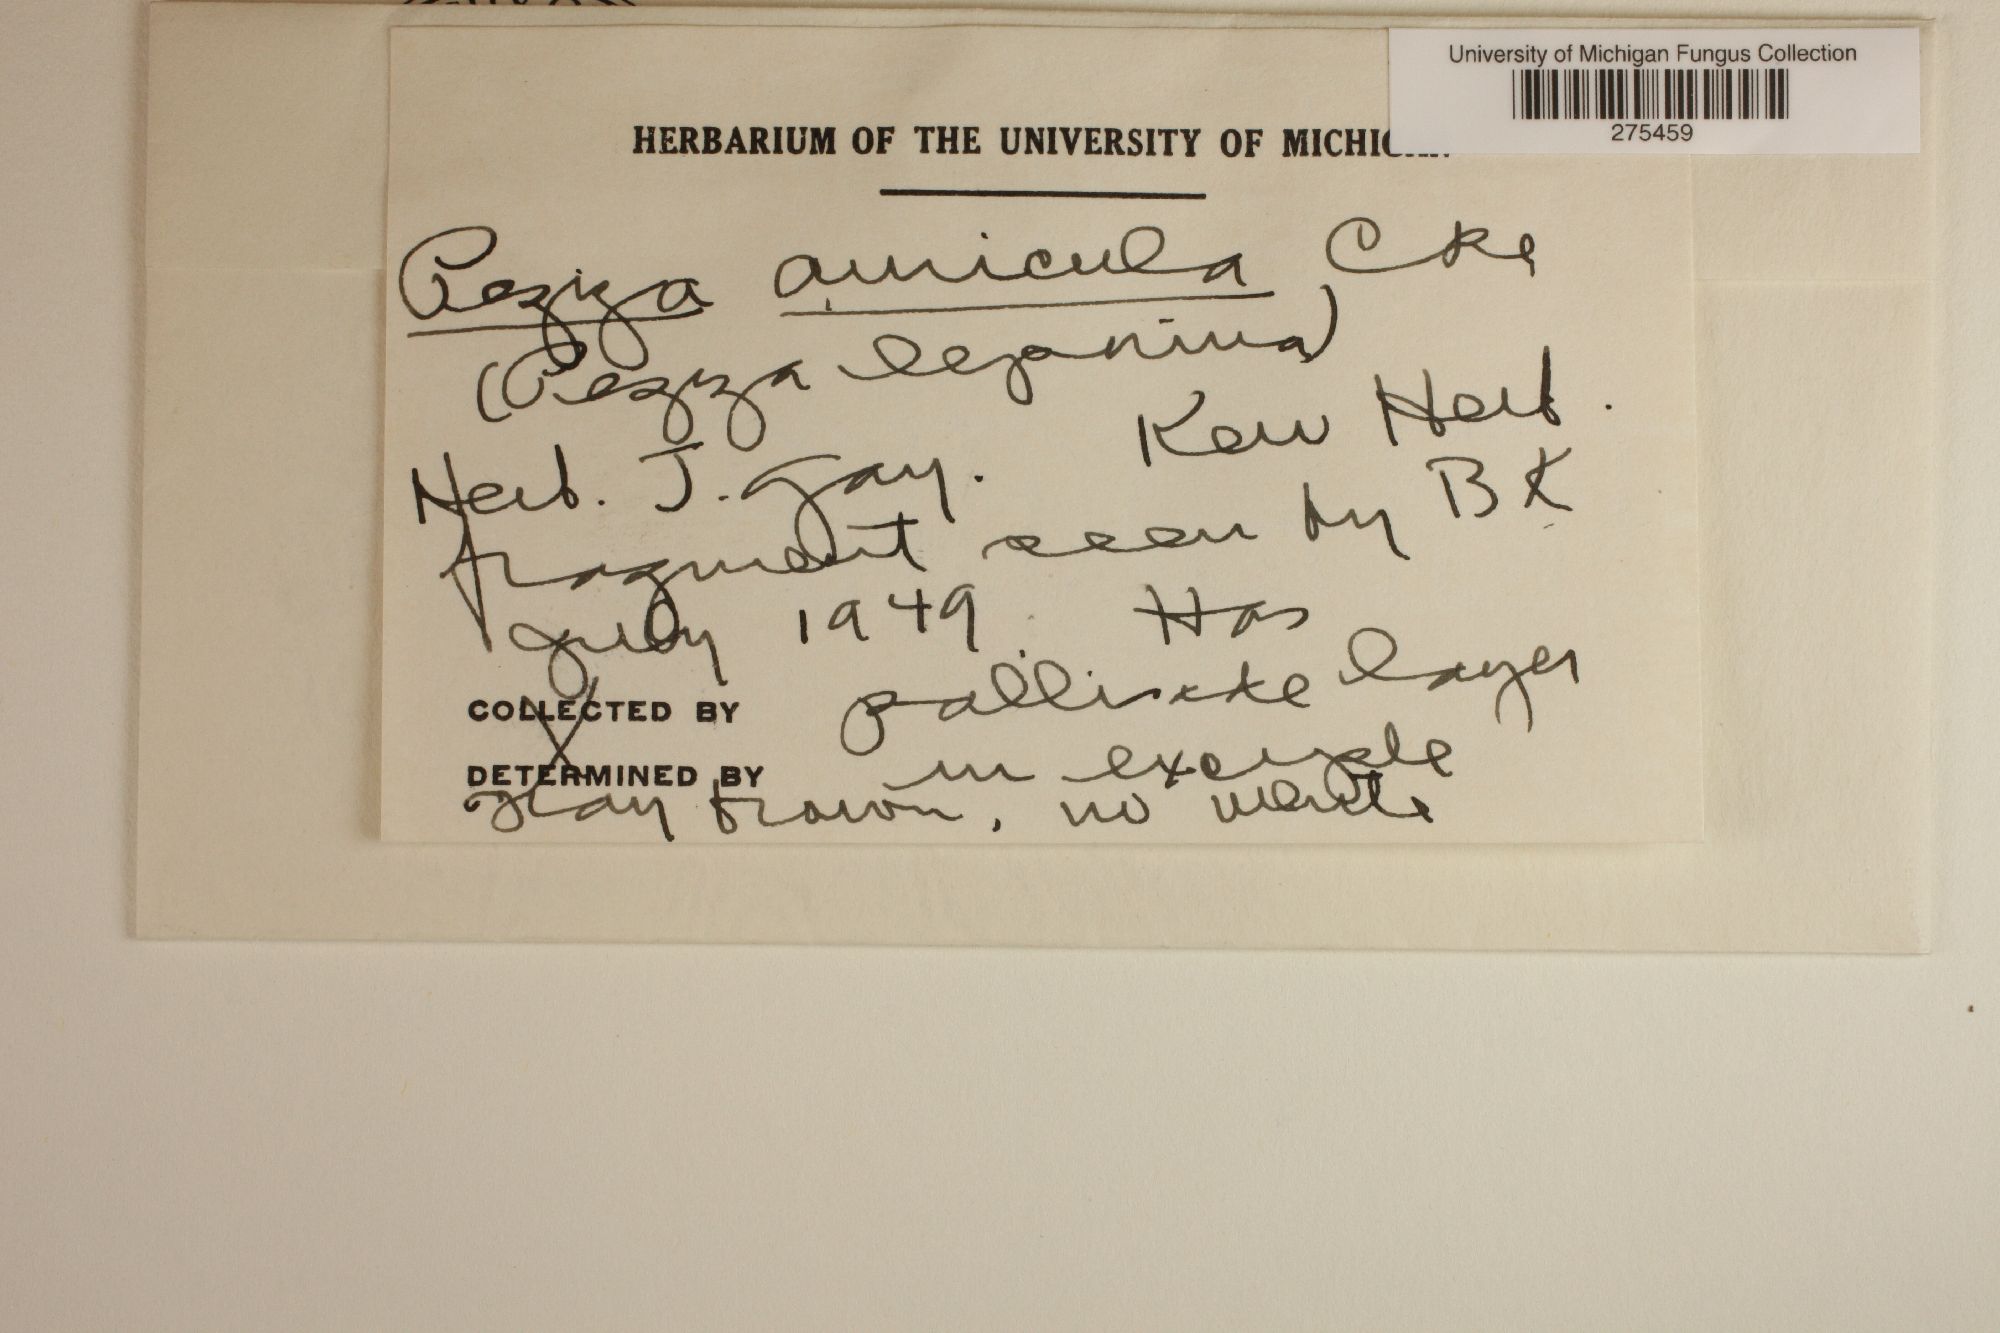 University of Michigan Fungus Collection
275459
HERBARIUM OF THE UNIVERSITY OF MICHIGAN
Peziza auricula Cke
(Peziza leporina)
Herb. J. Gay. Kew Herb.
fragment seen by BK
July 1949. Has
COLLECTED BY pallisade layer
DETERMINED BY in exciple
gray brown, no warts